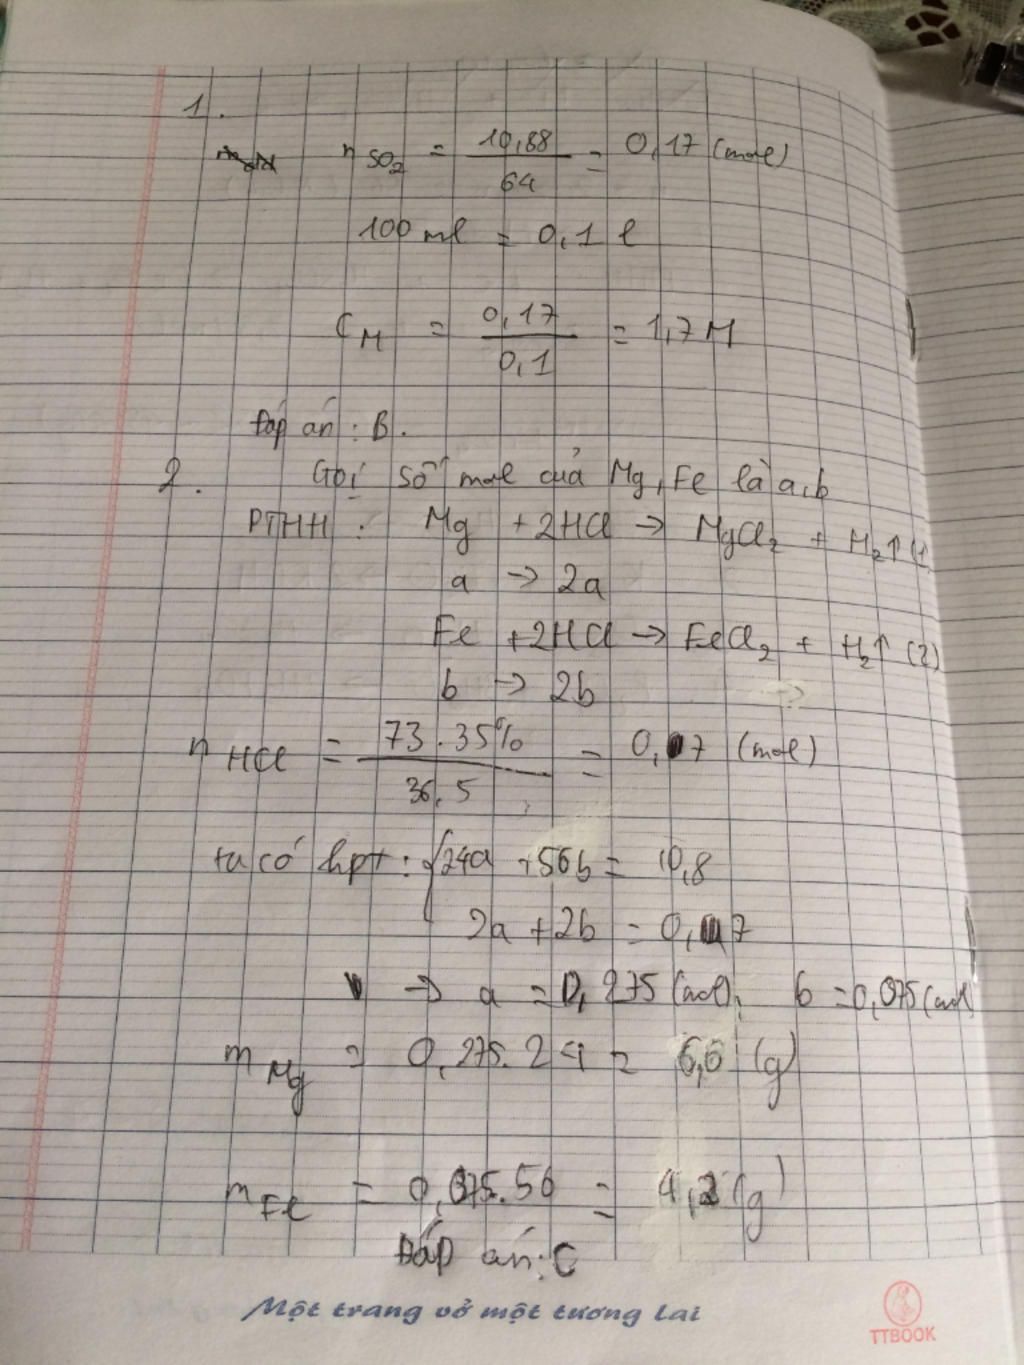 1.
n SO₂ = 10,88/64 = 0,17 (mol)
100 ml = 0,1 l
C M = 0,17/0,1 = 1,7 M
Đáp án : B.
2. Gọi số mol của Mg, Fe là a,b
PTHH : Mg + 2HCl → MgCl₂ + H₂↑ (1
a → 2a
Fe + 2HCl → FeCl₂ + H₂↑ (2)
b → 2b
n HCl = 73.35%/36,5 = 0,7 (mol)
ta có hpt : { 24a + 56b = 10,8
2a + 2b = 0,7
→ a = 0,275 (mol), b = 0,075 (mol
m Mg = 0,275.24 = 6,6 (g)
m Fe = 0,075.56 = 4,2 (g)
Đáp án : C
Một trang vở một tương lai
TTBOOK